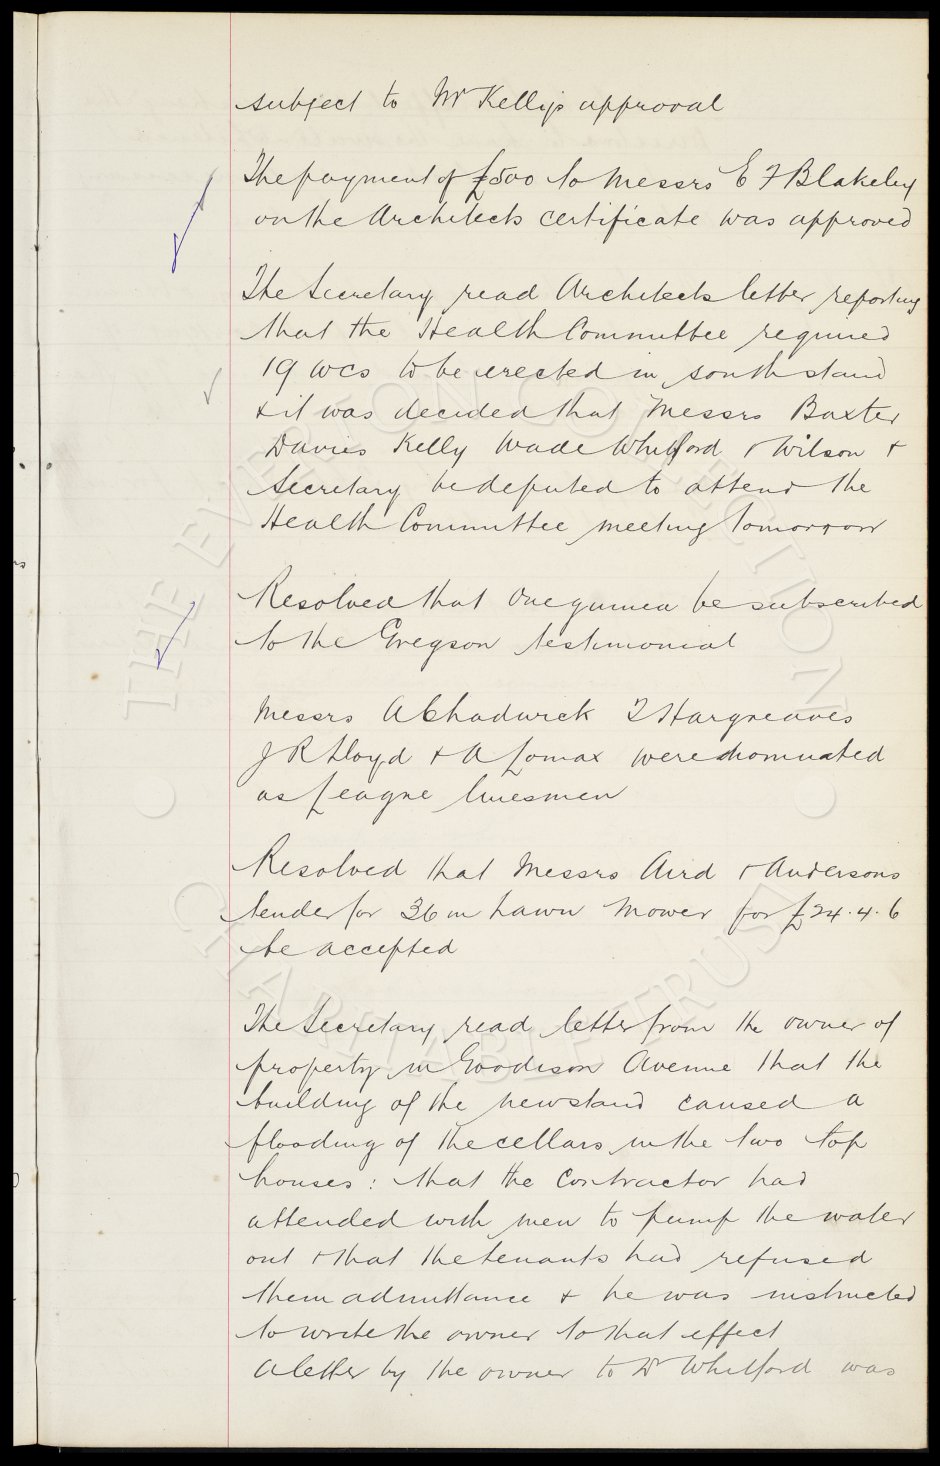 subject to Mr Kelly's approval
The payment of £500 to Messrs E F Blakeley
on the Architects certificate was approved
The Secretary read Architects letter reporting
that the Health Committee required
19 wcs to be erected in south stand
& it was decided that Messrs Baxter
Davies Kelly Wade Whitford & Wilson &
Secretary be deputed to attend the
Health Committee meeting tomorrow
Resolved that One guinea be subscribed
to the Gregson testimonial
Messrs A Chadwick T Hargreaves
J R Lloyd & A Lomax were nominated
as League linesmen
Resolved that Messrs Aird & Andersons
tender for 36 in Lawn Mower for £24.4.6
be accepted
The Secretary read letter from the owner of
property in Goodison Avenue that the
building of the new stand caused a
flooding of the cellars in the two top
houses: that the Contractor had
attended with men to pump the water
out & that the tenants had refused
them admittance & he was instructed
to write the owner to that effect
A letter by the owner to Dr Whitford was
THE EVERTON COLLECTION
CHARITABLE TRUST